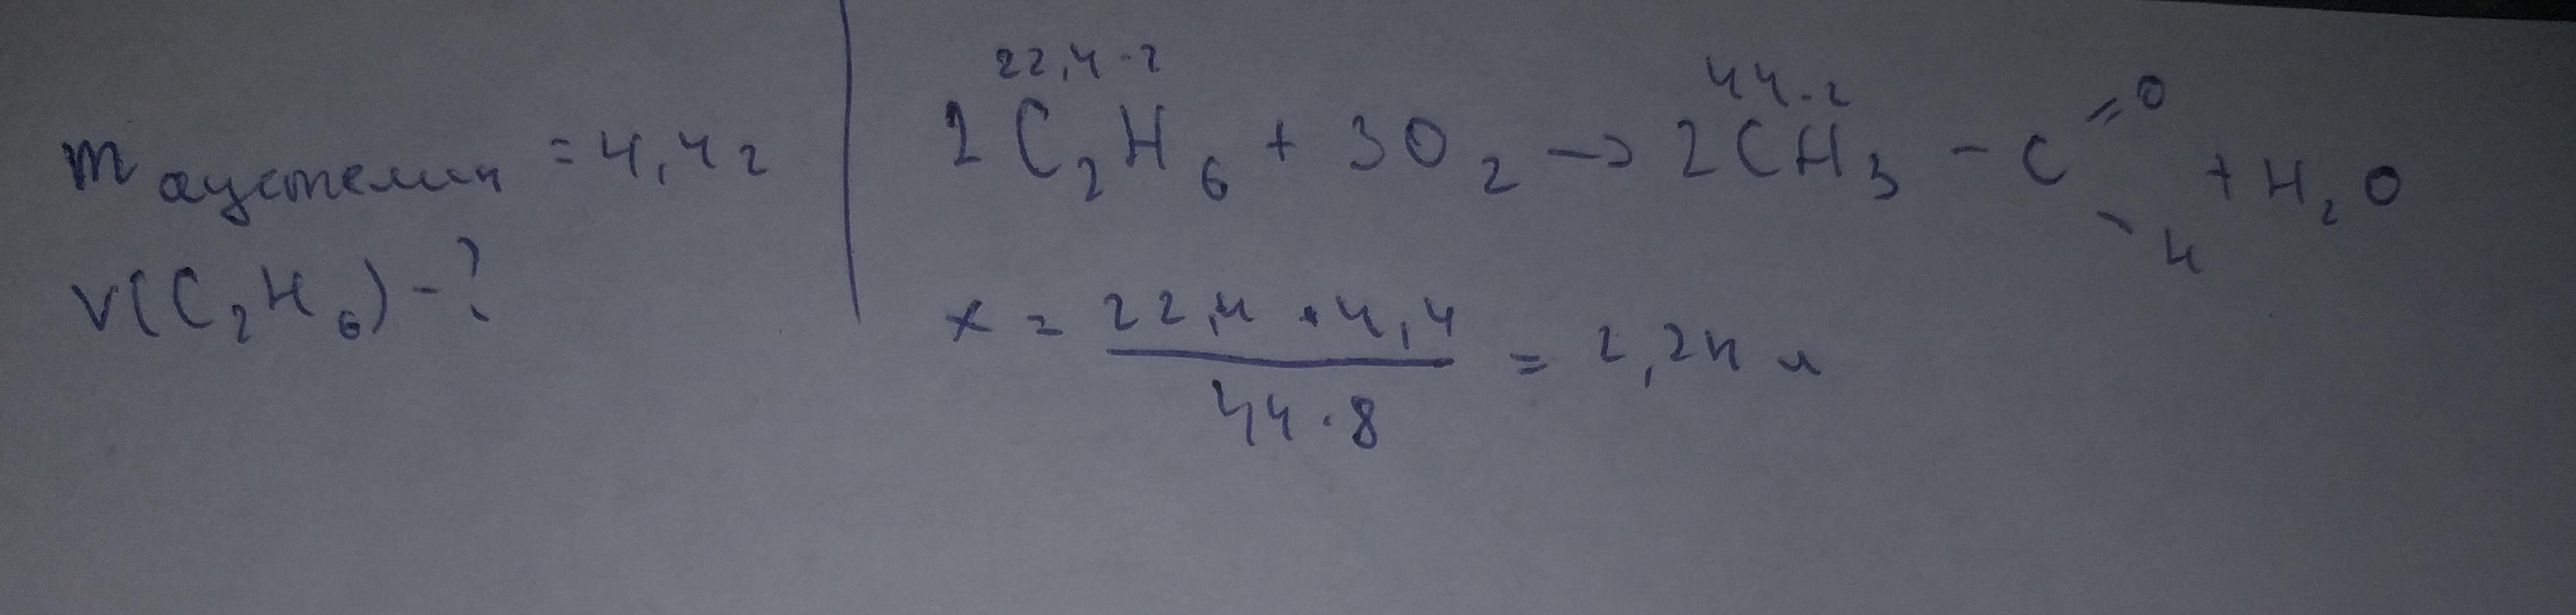 m ацетален = 4,4г
V(C₂H₆) - ?
22,4·2 44·2
2C₂H₆ + 3O₂ → 2CH₃ - C =O -H + H₂O
x = 22,4 · 4,4 / 44·8 = 2,24 л